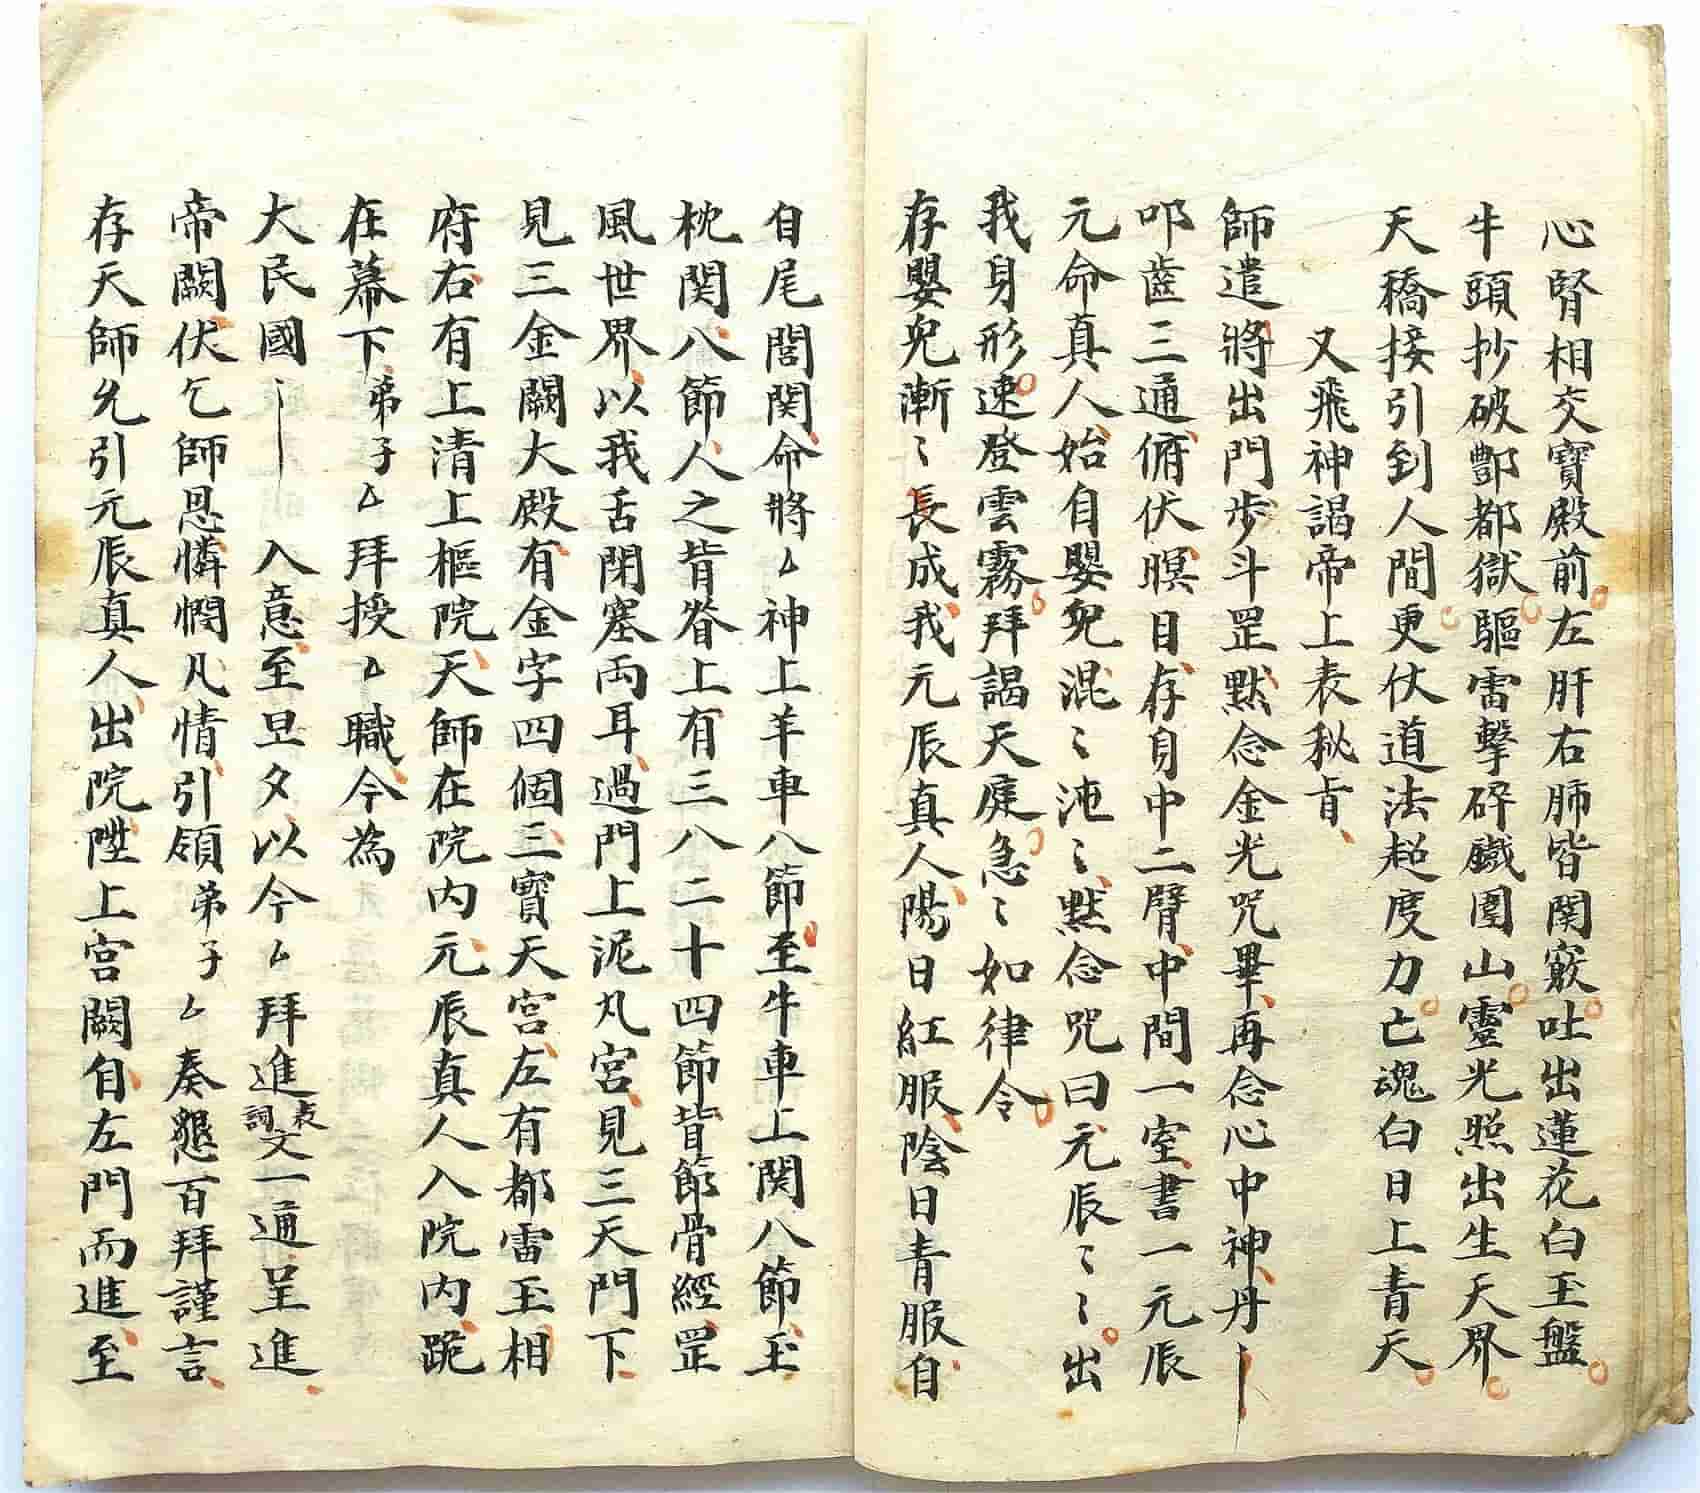 心腎相交寶殿前左肝右肺皆関竅吐出蓮花白玉盤
牛頭抄破酆都獄驅雷擊碎鐵圍山靈光照出生天界
天橋接引到人間更仗道法超度力亡魂白日上青天
又飛神謁帝上表秘旨
師遣將出門步斗罡黙念金光咒畢再念心中神丹
叩齒三通俯伏暝目存身中二臂中間一室書一元辰
元命真人始自嬰兒混〻沌〻黙念咒曰元辰〻〻出
我身形速登雲霧拜謁天庭急〻如律令
存嬰兒漸〻長成我元辰真人陽日紅服陰日青服自
自尾閭関命將厶神上羊車八節至牛車上関八節玉
枕関八節人之背脊上有三八二十四節皆節骨經罡
風世界以我舌閉塞両耳過門上泥丸宮見三天門下
見三金闕大殿有金字四個三寳天宮左有都雷玉相
府右有上清上樞院天師在院內元辰真人入院內跪
在幕下弟子厶拜授厶職今為
大民國 入意至旦夕以今厶拜進表詞文一通呈進
帝闕伏乞師恩憐憫凡情引領弟子厶奏懇百拜謹言
存天師允引元辰真人出院陞上宮闕自左門而進至